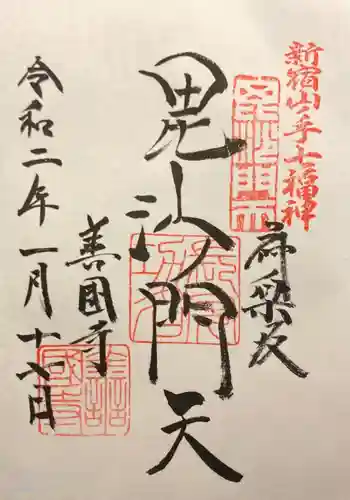 新宿山ノ手七福神
神楽坂
毘沙門天
善国寺
令和二年一月十六日